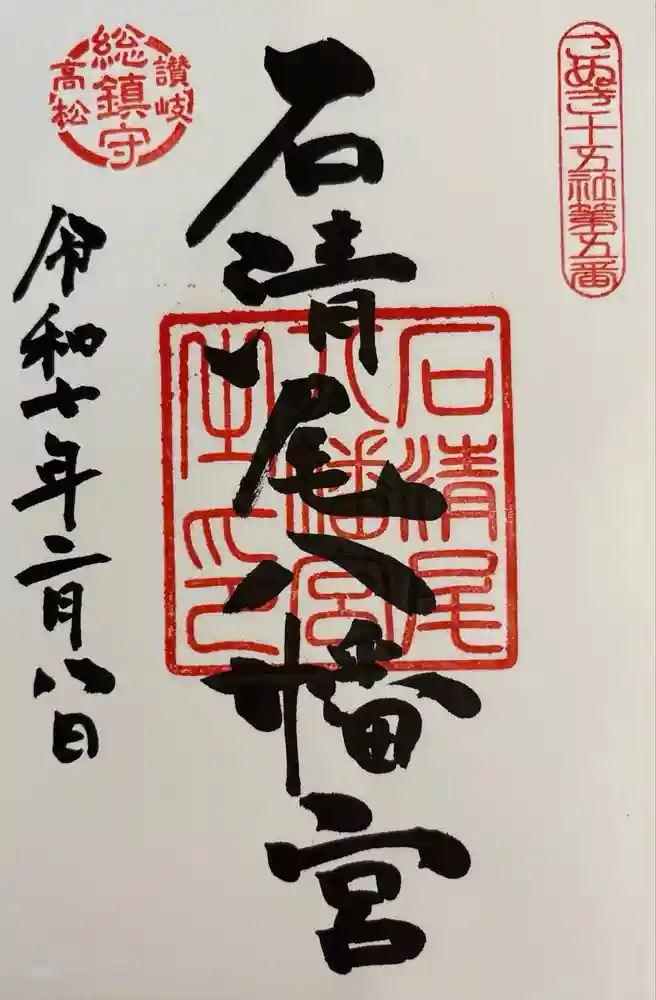 さぬき十五社第五番
石清尾八幡宮
石清尾
八幡宮
之印
讃岐
総鎮守
高松
令和七年二月八日